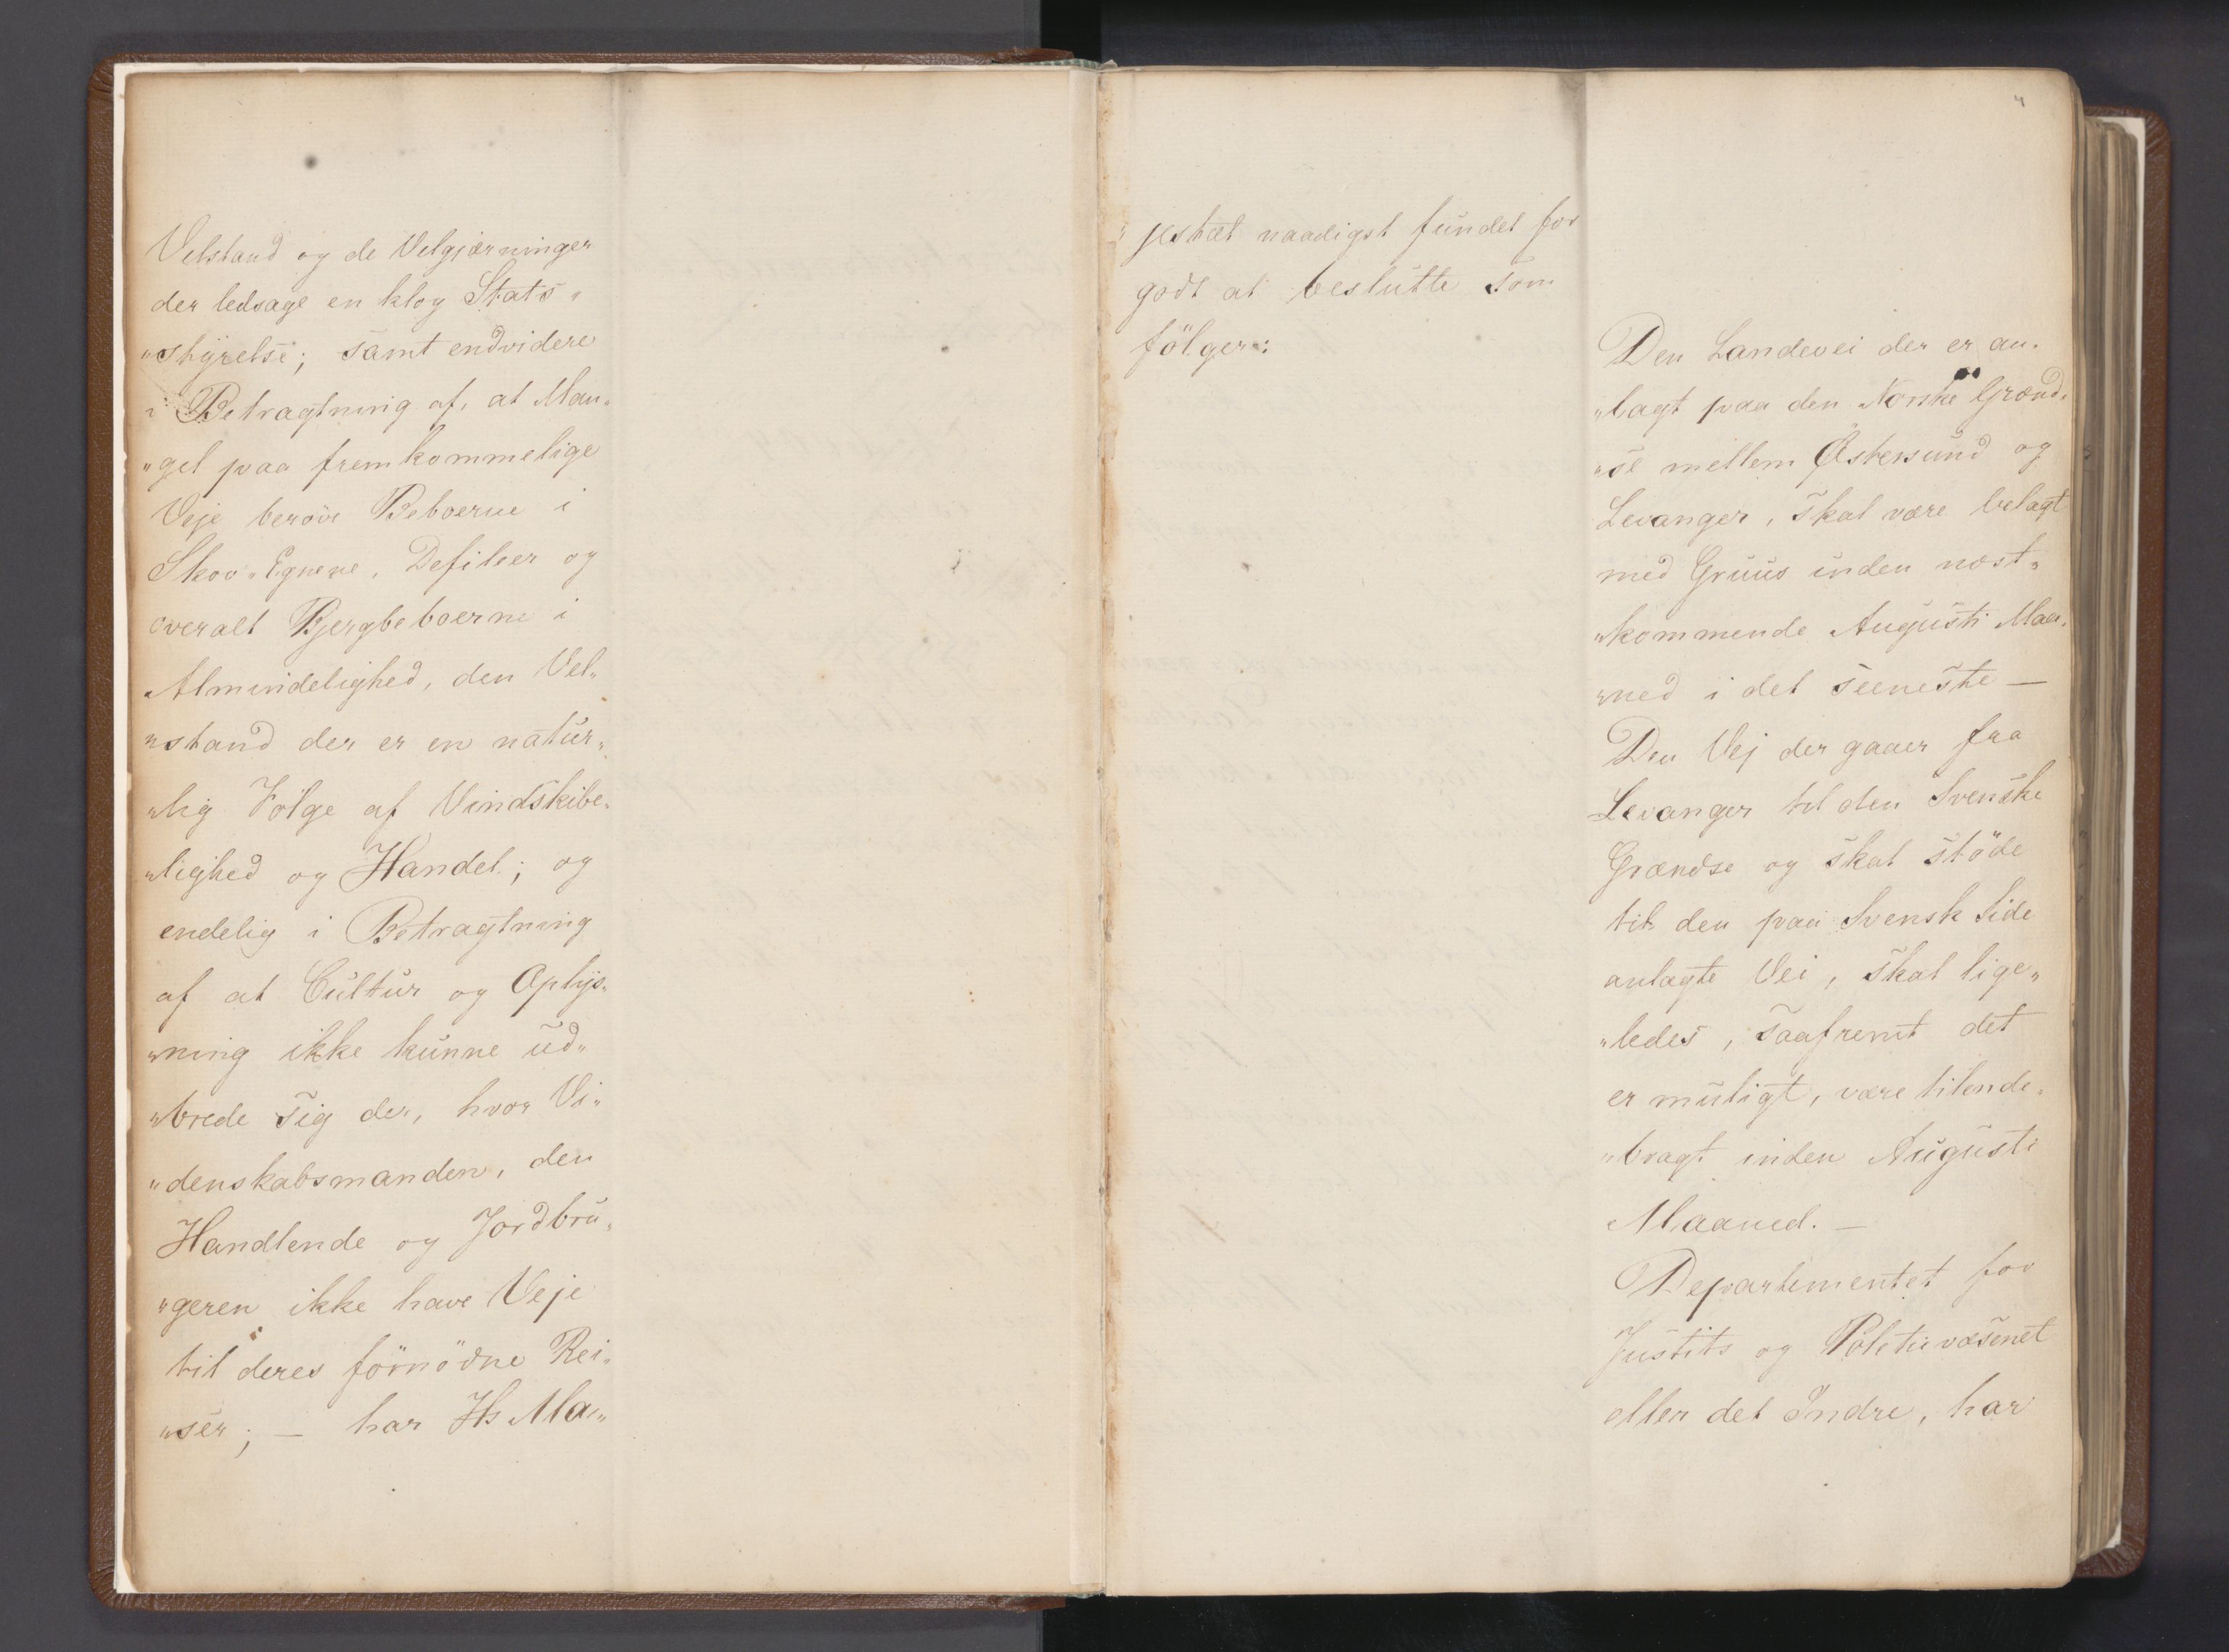 Velstand og de Velgjærninger
der ledsage en klog Stats„
„styrelse; samt endvidere
i Betragtning af, at Man„
„gel paa fremkommelige
Veje beröve Beboerne i
Skov„Egnene, Defileer og
overalt Bjergbeboerne i
Almindelighed, den Vel„
„stand der er en natur„
„lig Fölge af Vindskibe„
„lighed og Handel; og
endelig i Betragtning
af at Cultur og Oplys„
„ning ikke kunne ud„
„brede sig der, hvor Vi„
„denskabsmanden, den
Handlende og Jordbru„
„geren ikke have Veje
til deres fornödne Rei„
„ser; — har Hs Ma„
„jestæt naadigst fundet for
godt at beslutte som
fölger:
4
Den Landevei der er an„
„lagt paa den Norske Grænd„
„se mellem Östersund og
Levanger, skal være belagt
med Gruus inden næst„
„kommende Augusti Maa„
„ned i det seeneste —
Den Vej der gaaer fra
Levanger til den Svenske
Grændse og skal stöde
til den paa Svensk Side
anlagte Vei, skal lige„
„ledes, saafremt det
er muligt, være tilende„
„bragt inden Augusti
Maaned. —
Departementet for
Justits og Politievæsenet
eller det Indre, har